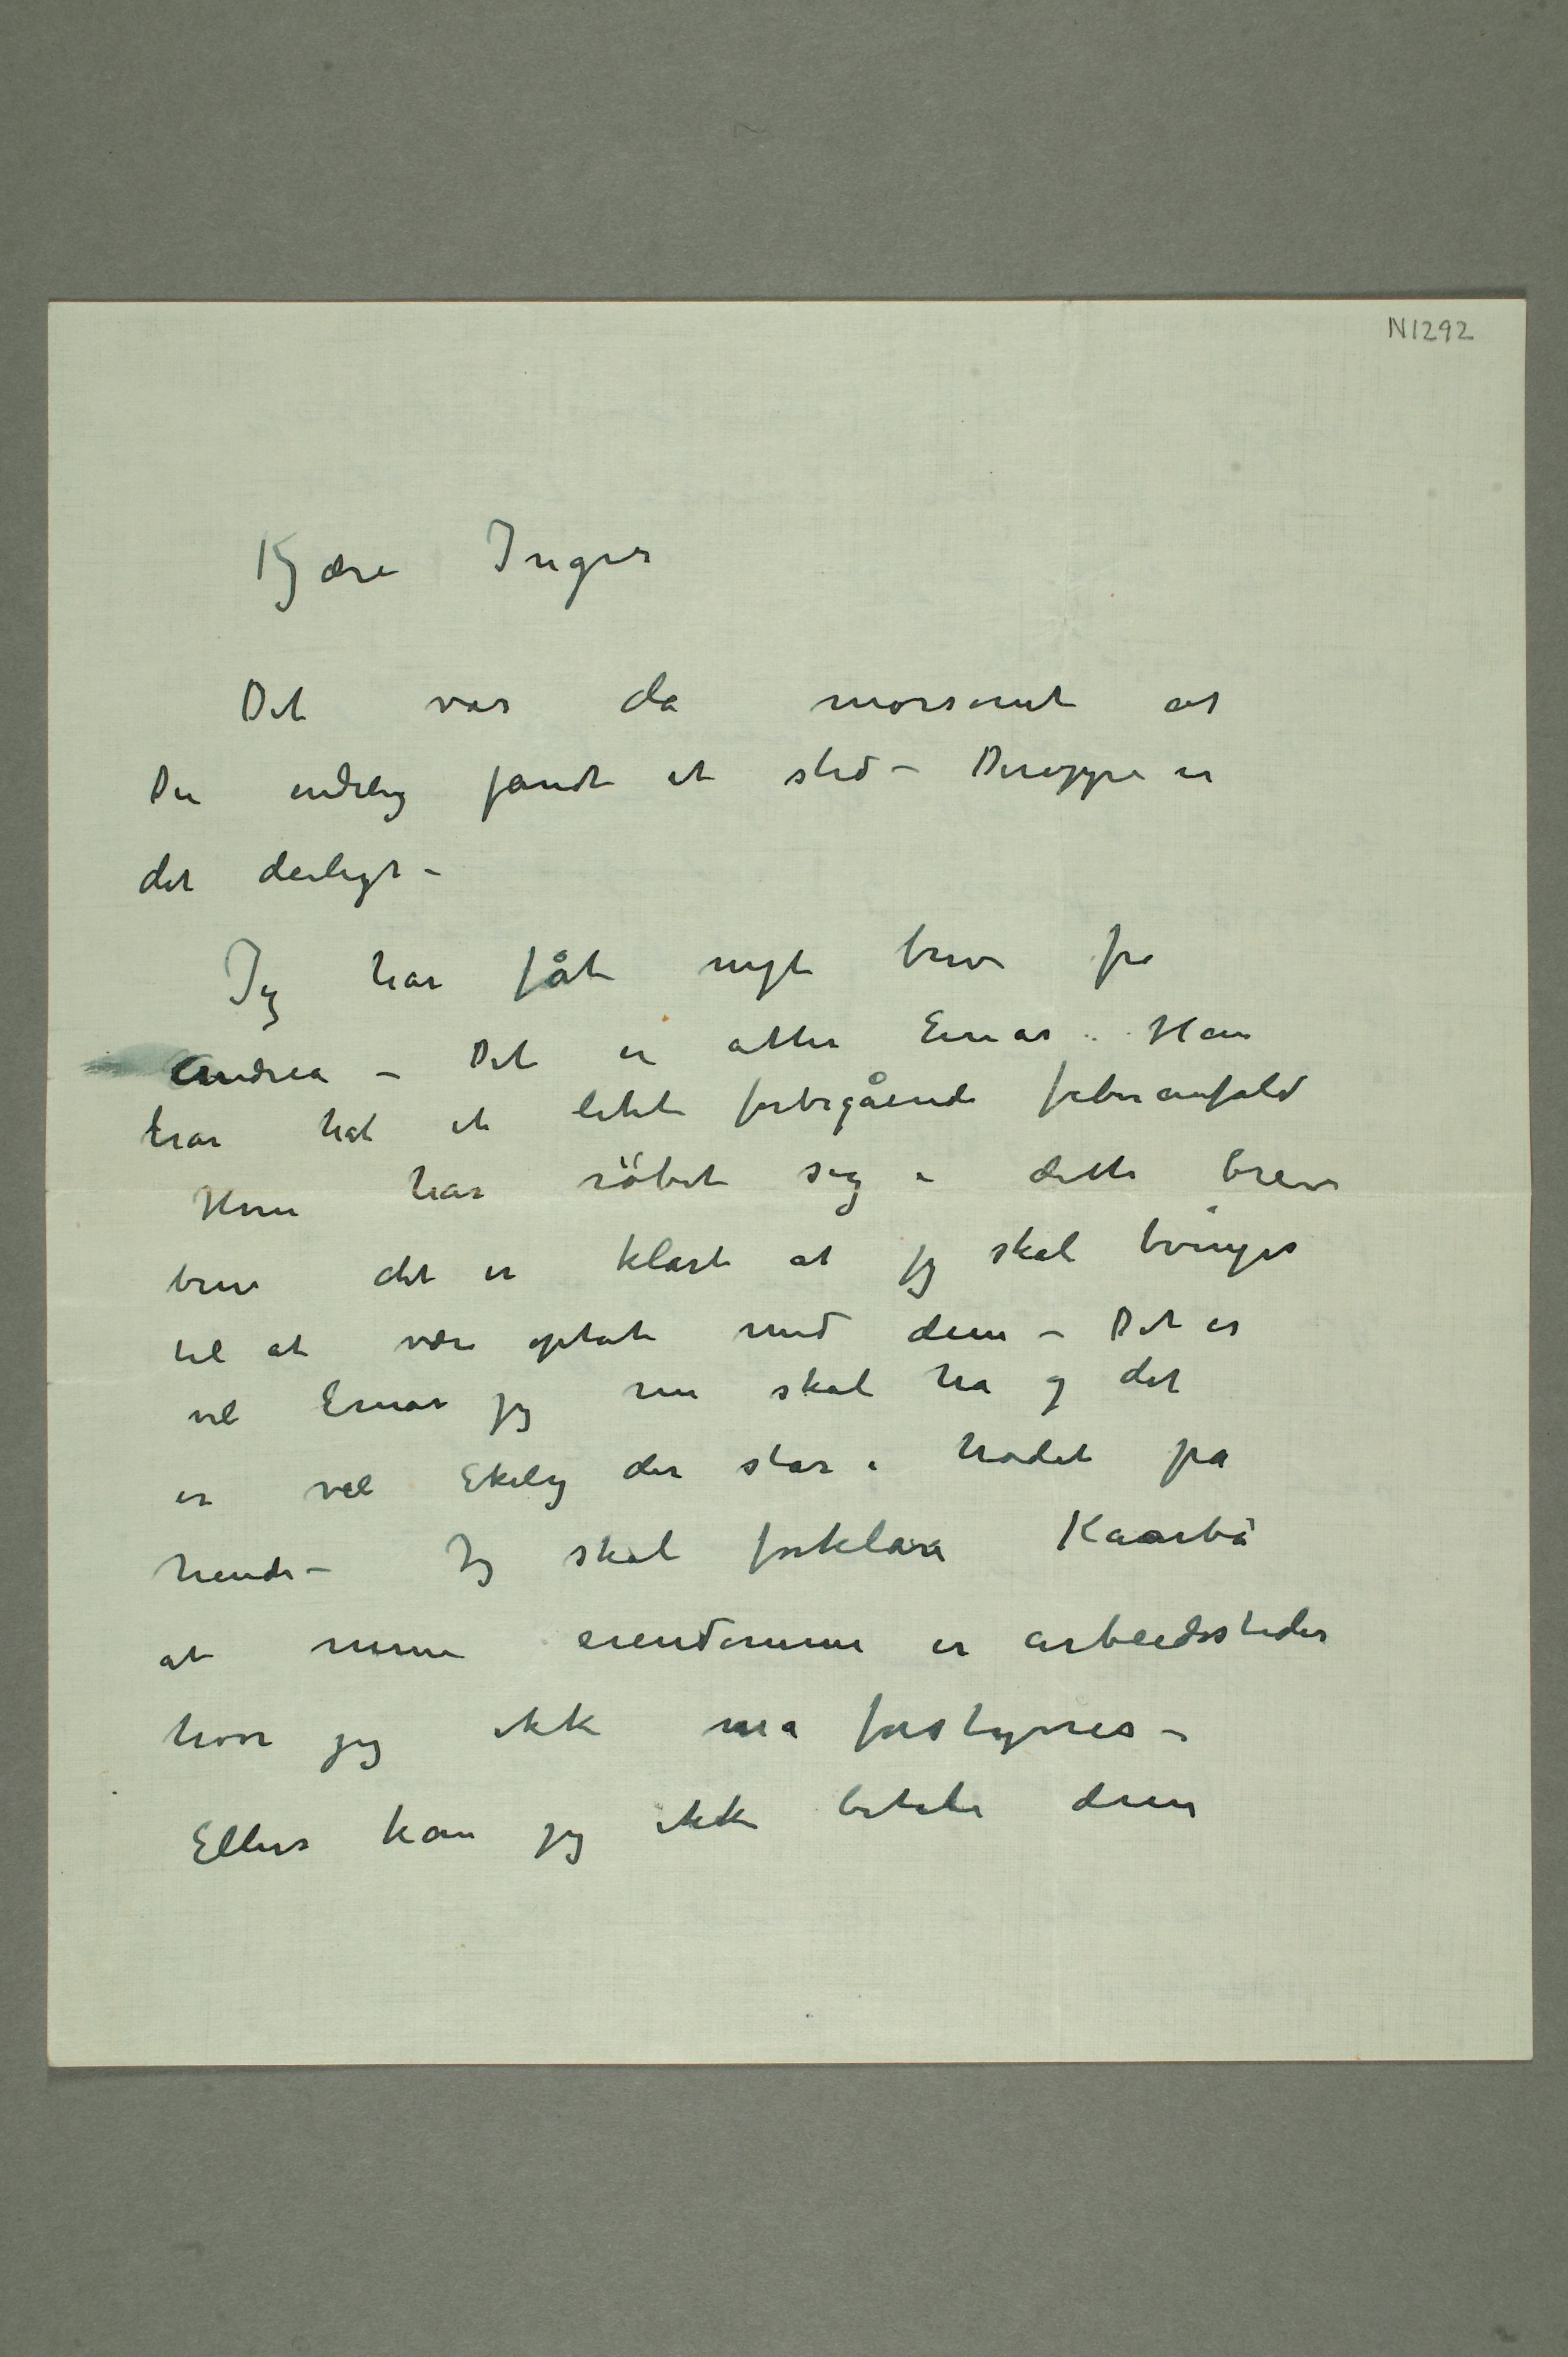 N1292
Kjære Inger
Det var da morsomt at
Du endelig fandt et sted – Deroppe er
det deiligt –
Jeg har fåt nyt brev fra
Andrea – Det er atter Einar. Han
har hat et litet forbigående feberanfald
Hun har röbet sig i dette brev
brev det er klart at jeg skal tvinges
til at være optat med dem – Det er
vel Einar jeg nu skal ha og det
er vel Ekely der står i hodet på
hende – Jeg skal forklare Kaarbö
at mine eiendomme er arbeidssteder
hvor jeg ikke må forstyrres –
Ellers kan jeg ikke betale dem